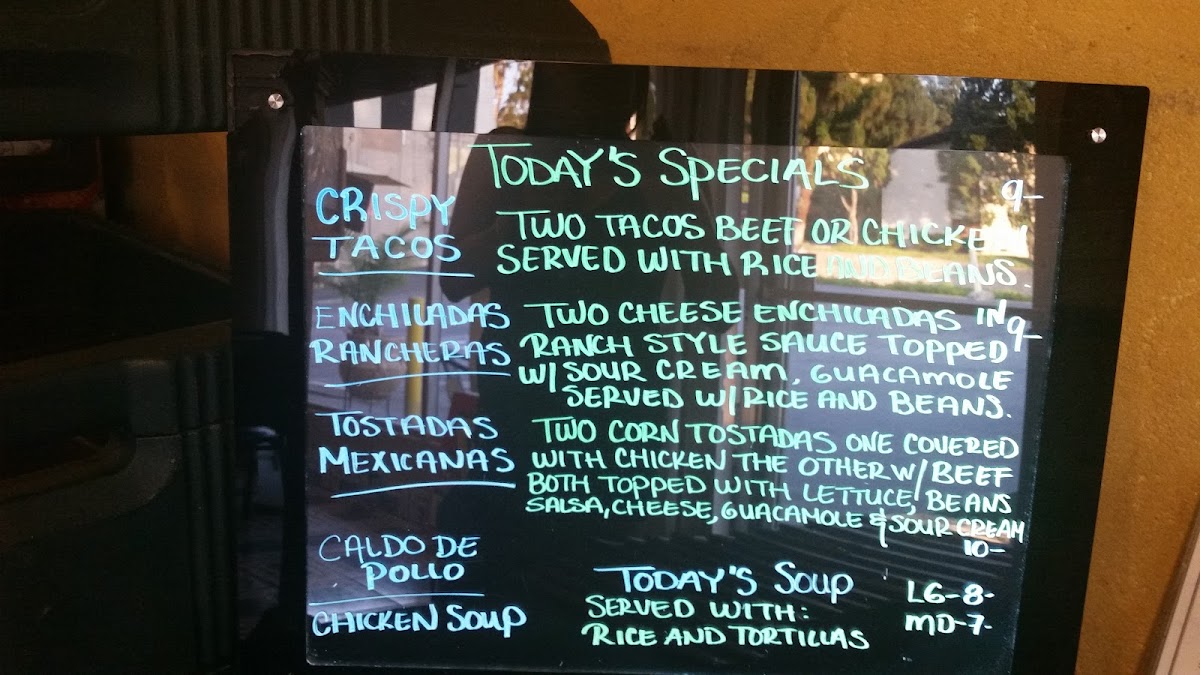 TODAY'S SPECIALS
CRISPY
TACOS
9-
TWO TACOS BEEF OR CHICKEN
SERVED WITH RICE AND BEANS.
ENCHILADAS
RANCHERAS
TWO CHEESE ENCHILADAS IN
RANCH STYLE SAUCE TOPPED
9-
W/ SOUR CREAM, GUACAMOLE
SERVED W/ RICE AND BEANS.
TOSTADAS
MEXICANAS
TWO CORN TOSTADAS ONE COVERED
WITH CHICKEN THE OTHER W/ BEEF
BOTH TOPPED WITH LETTUCE, BEANS
SALSA, CHEESE, GUACAMOLE & SOUR CREAM
10-
CALDO DE
POLLO
CHICKEN SOUP
TODAY'S SOUP
SERVED WITH:
RICE AND TORTILLAS
LG-8-
MD-7-